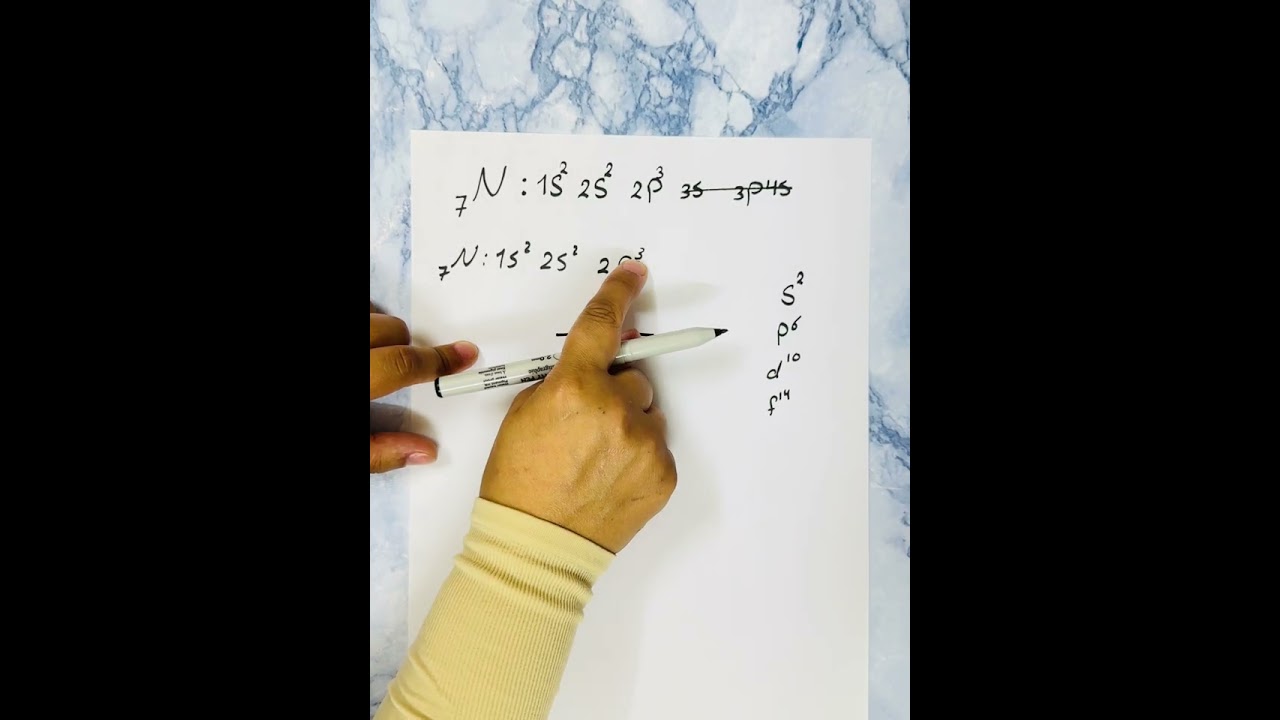 ₇N : 1s² 2s² 2p³ 3s 3p 4s
₇N : 1s² 2s² 2p³
s²
p⁶
d¹⁰
f¹⁴